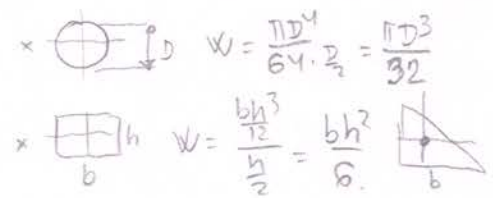 × D W = πD⁴ / (64 · D/2) = πD³ / 32
× h b W = (bh³/12) / (h/2) = bh² / 6. b